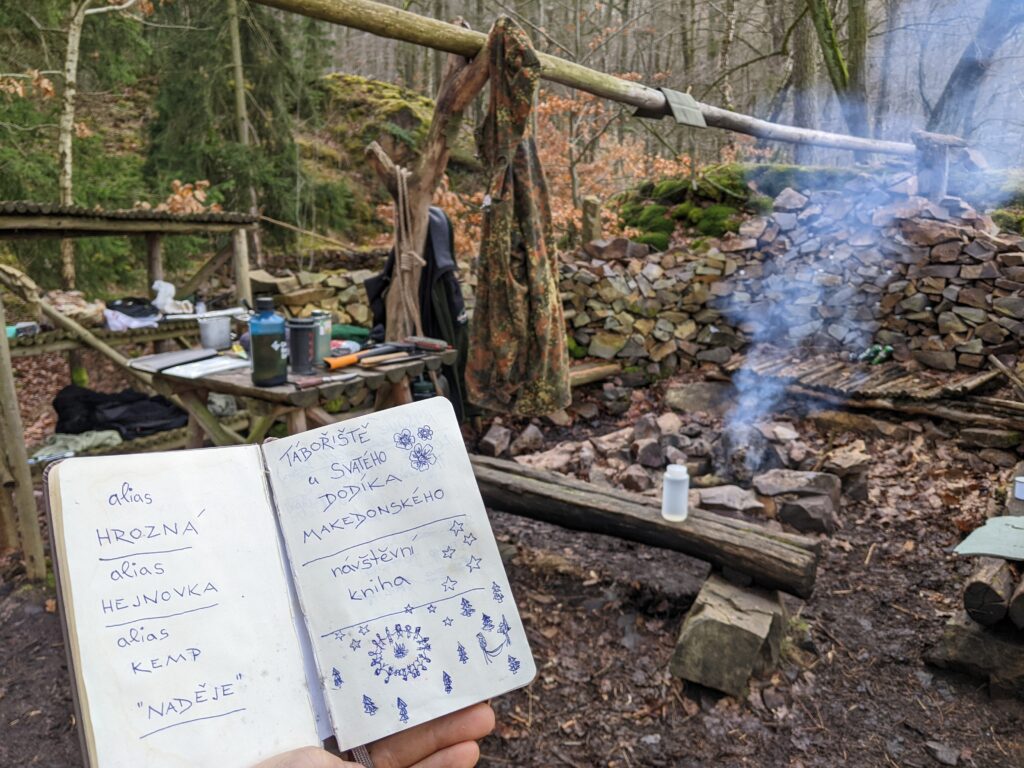 alias
HROZNÁ
alias
HEJNOVKA
alias
KEMP
"NADĚJE"
TÁBOŘIŠTĚ
u SVATÉHO
DODÍKA
MAKEDONSKÉHO
návštěvní
kniha